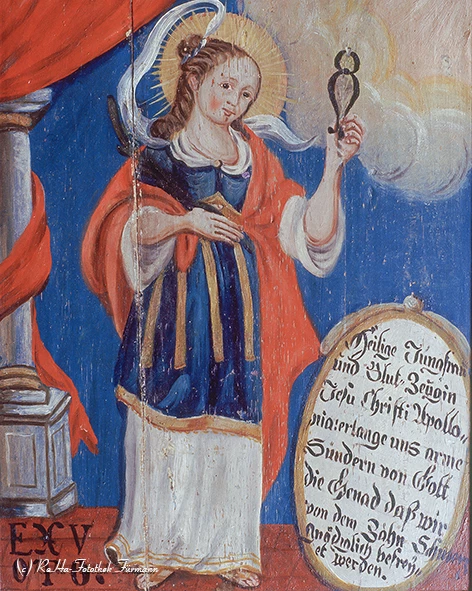 Heilige Jungfrau
und Blut-Zeugin
Jesu Christi Apollo,
nia erlange uns arme
Sündern von Gott
die Genad daß wir
von dem Zahn
gnädiglich befrey-
et werden.
EX V
(c) RaHa-Fotothek Furmann